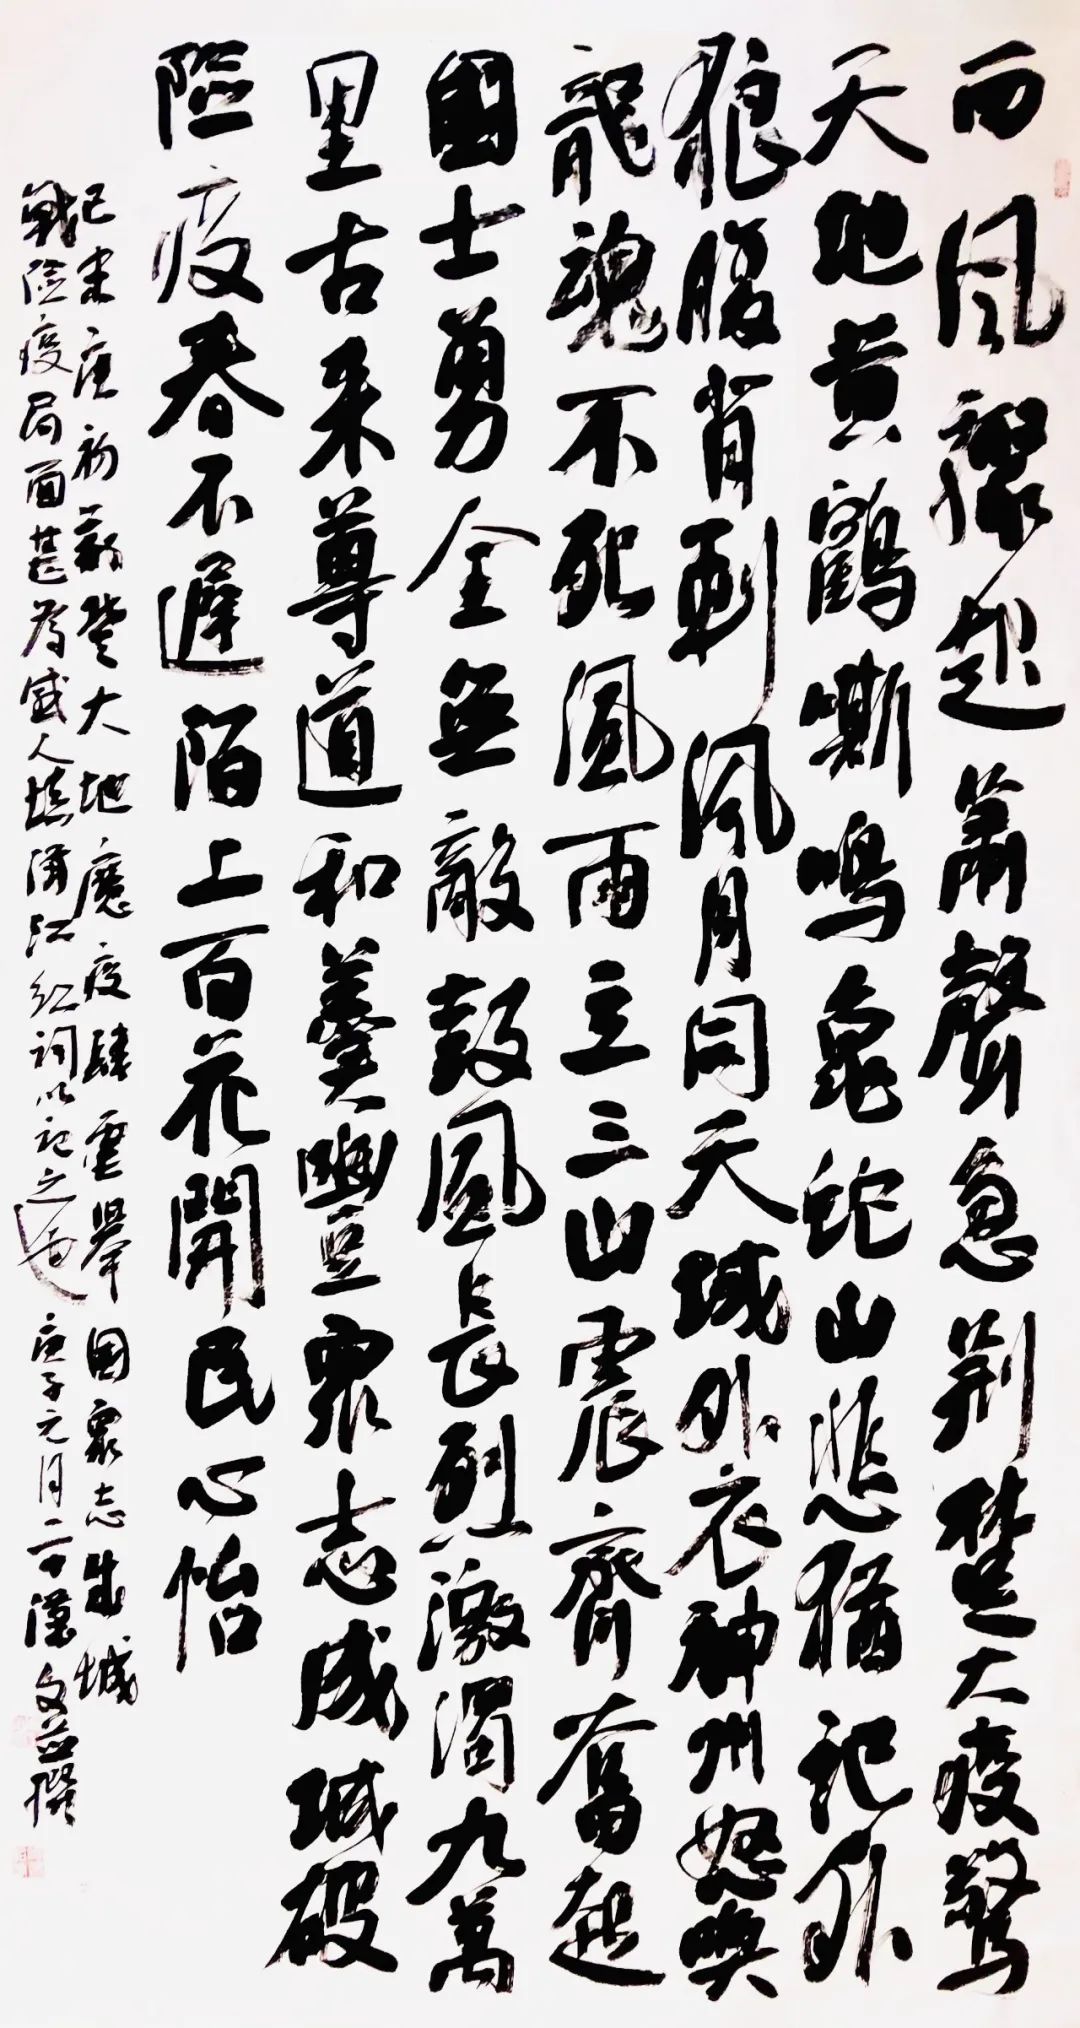 西风骤起萧聲急荆楚大疫驚
天地黄鶴嘶鳴龜蛇山悲猶記外
狼腹背刺风月同天域外衣神州怒喚
龍魂不死風雨立三山震齊奮起
國士勇全無敵鼓風長烈激濁九萬
里古来尊道和羹豳豆眾志成城破
險疫春不遲陌上百花開民心怡
己亥庚初新楚大地魔疫肆虐舉國眾志成城
戰險疫局面甚為感人填满江红詞以記之 庚子元月二十漢文並撰